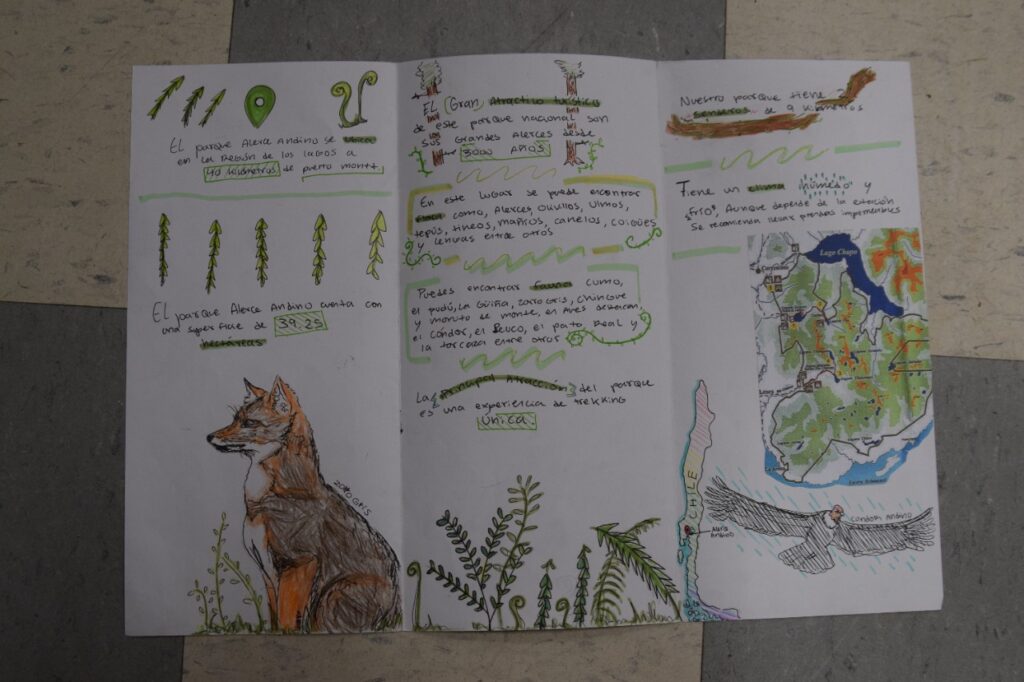 El parque Alerce Andino se ubica
en la Región de los lagos a
40 kilómetros de puerto montt
El parque Alerce Andino cuenta con
una superficie de 39.25
hectáreas
zorro Gris
El Gran Atractivo turístico
de este parque nacional son
sus Grandes Alerces desde
3000 AÑOS
En este lugar se puede encontrar
flora como, Alerces, Olivillos, Ulmos,
tepús, tineos, mañios, canelos, coigües
y lenuras entre otros
Puedes encontrar fauna como,
el pudú, la Güiña, zorro Gris, chincue
y monito de monte, en Aves destacan
el cóndor, el Peuco, el pato Real y
la torcaza entre otros
La Principal Atracción del parque
es una experiencia de trekking
Única.
Nuestro parque tiene
senderos de 9 kilómetros
Tiene un clima Húmedo y
Frío, Aunque depende de la estación
Se recomienda llevar prendas impermeables
Lago Chapo
CHILE
Alerce
Andino
Cóndor Andino